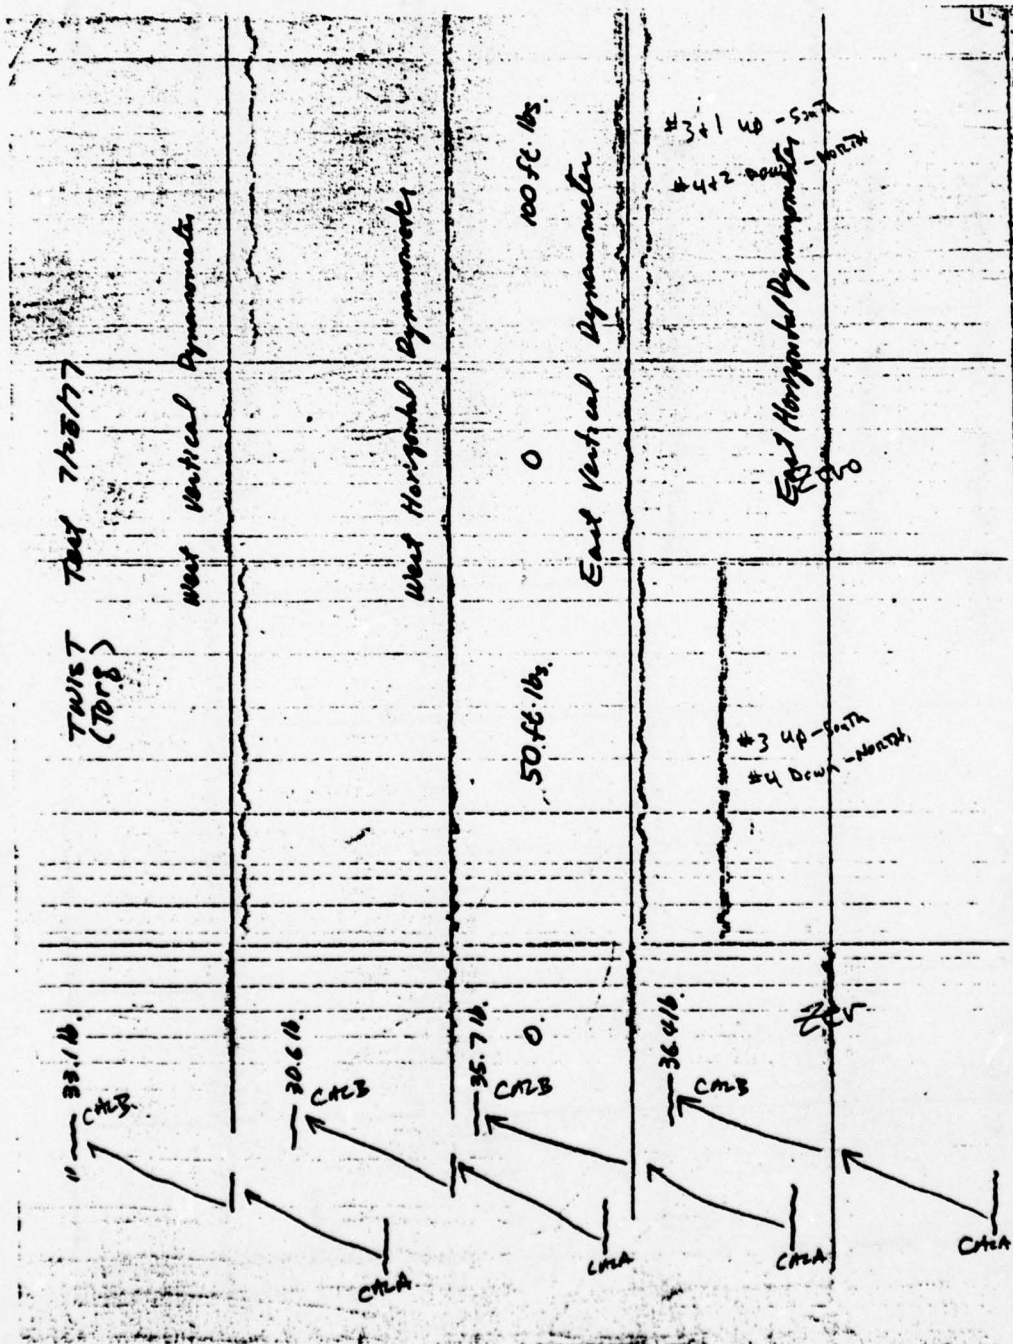 TWIST Test 7/28/77
(Torq)
West Vertical Dynamometer
33.1 lb.
CALB
CALA
West Horizontal Dynamometer
30.6 lb.
CALB
CALA
0. 50 ft. lbs. 0 100 ft. lbs.
East Vertical Dynamometer
35.7 lb.
CALB
CALA
#3 up - South
#4 Down - North
#3+1 up - South
#4+2 Down - North
East Horizontal Dynamometer
36.4 lb.
CALB
CALA
Zero